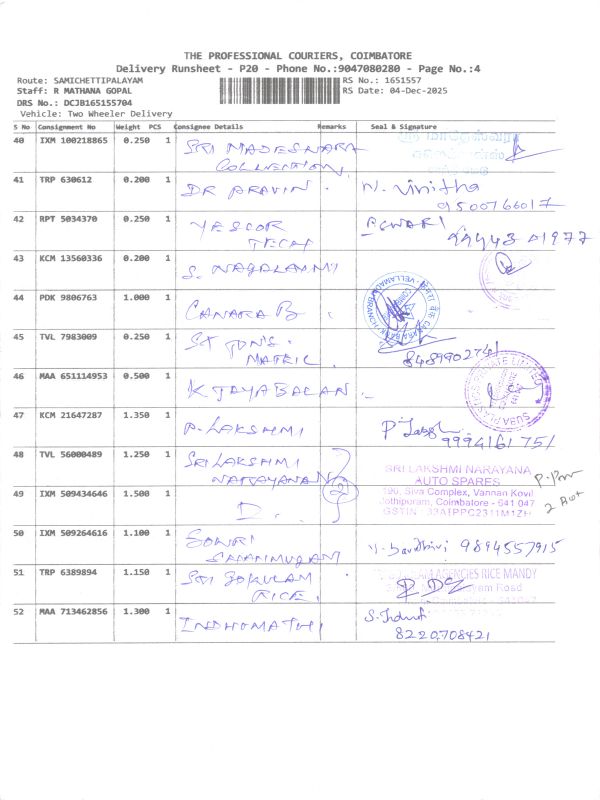 THE PROFESSIONAL COURIERS, COIMBATORE
Delivery Runsheet - P20 - Phone No.:9047080280 - Page No.:4
Route: SAMICHETTIPALAYAM RS No.: 1651557
Staff: R MATHANA GOPAL RS Date: 04-Dec-2025
DRS No.: DCJB165155704
Vehicle: Two Wheeler Delivery
S No Consignment No Weight PCS Consignee Details Remarks Seal & Signature
40 IXM 100218865 0.250 1 SRI MADESWARA
COLLECTION
41 TRP 630612 0.200 1 DR ARAVIN. N. Vinitha
9500766017
42 RPT 5034370 0.250 1 YESCOR
TECH
99443 01977
43 KCM 13560336 0.200 1 S. NAGALAXMI
44 PDK 9806763 1.000 1 CANARA B.
45 TVL 7983009 0.250 1 ST JON'S
MATRIC
8489902741
46 MAA 651114953 0.500 1 K JAYABALAN
47 KCM 21647287 1.350 1 P. LAKSHMI
9994161751
48 TVL 56000489 1.250 1 SRI LAKSHMI
NARAYANAN
SRI LAKSHMI NARAYANA
AUTO SPARES
190, Siva Complex, Vannan Kovil
Jothipuram, Coimbatore - 641 047
GSTIN : 33AIPPC2311M1ZH
49 IXM 509434646 1.500 1 D. 2
50 IXM 509264616 1.100 1 GOWRI
SHANMUGAM
9894557915
51 TRP 6389894 1.150 1 SRI GOKULAM
RICE
AGENCIES RICE MANDY
Road
52 MAA 713462856 1.300 1 INDHUMATHI
8220708421